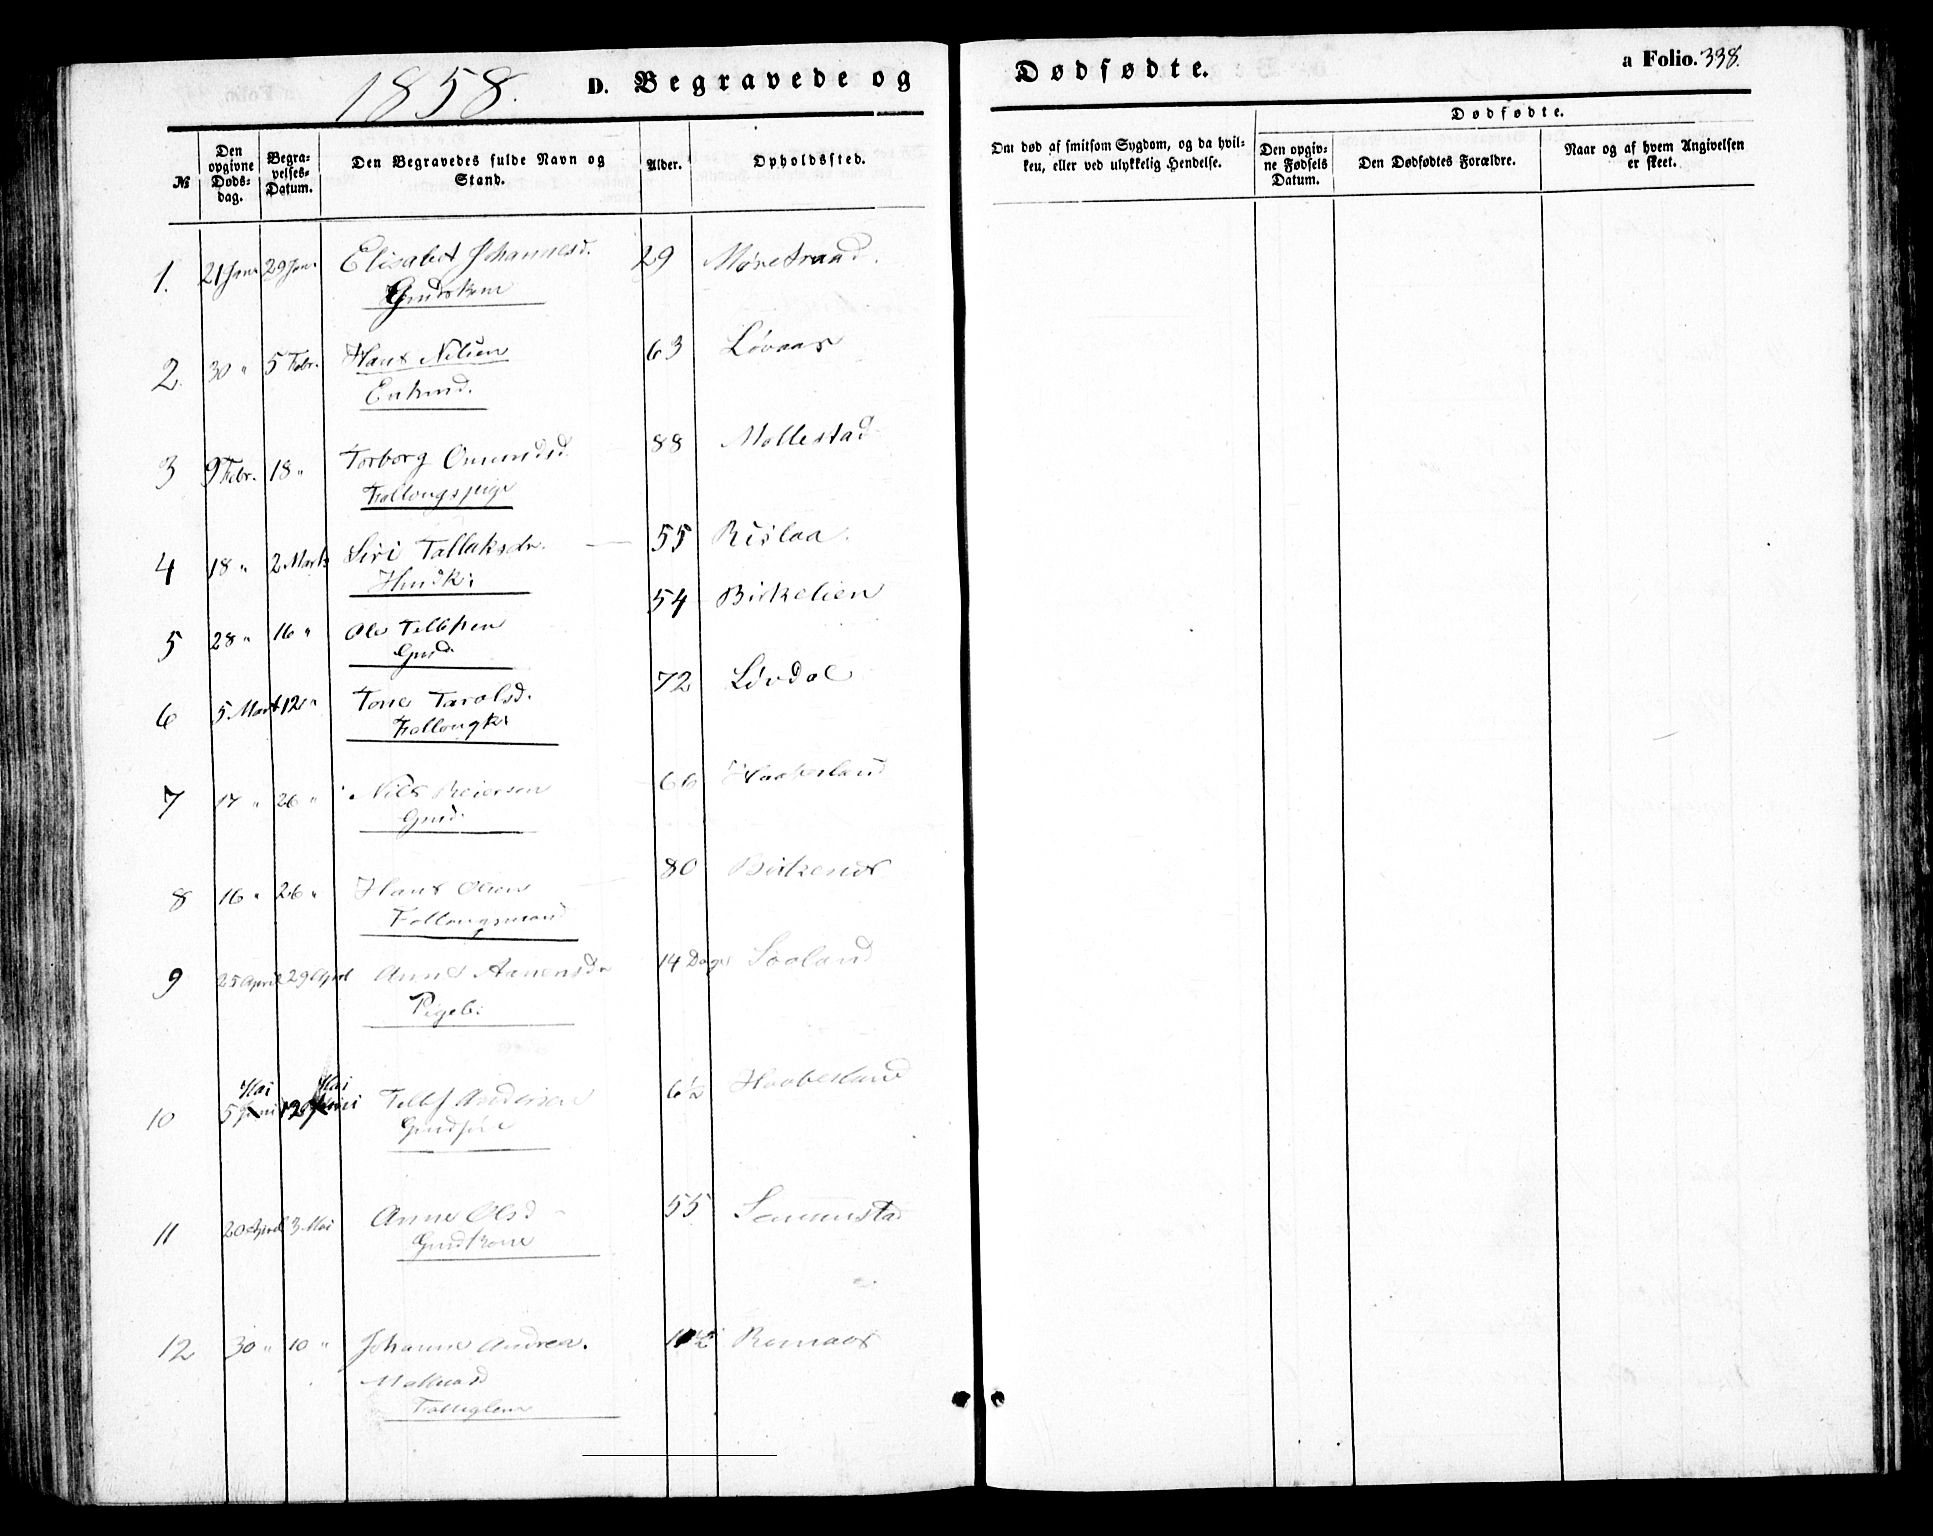 1858.
D. Begravede og Dødfødte.
a Folio. 338.
№
Den opgivne Døds-dag.
Begra-velses-Datum.
Den Begravedes fulde Navn og Stand.
Alder.
Opholdssted.
Om død af smitsom Sygdom, og da hvil-ken, eller ved ulykkelig Hendelse.
Dødfødte.
Den opgiv-ne Fødsels Datum.
Den Dødfødtes Forældre.
Naar og af hvem Angivelsen er skeet.
1. 21 Janr 29 Janr Elisabet Johannesd. 29
Gmdskone
2. 30 " 5 Febr. Hans Nilsen 63 Løvaas
Enkmd.
3 9 Febr. 18 " Torborg Omundsd. 88 Mollestad
Follougspige
4 18 " 2 Marts Siri Tallaksdr. 55 Rislaa.
Husk:
5 28 " 16 " Ole Tellefsen 54 Birkelien
Gmd.
6 5 Mart 12 " Tone Tarolsd. 72 Løvdal
Follougk:
7 17 " 26 " Nils Reiersen 66 Haabesland
Gmd.
8 16 " 26 " Hans Olsen 80 Birkenes
Follougsmand
9 25 April 29 April Anne Aanensdr 14 Dage
Pigeb:
Mai Mai
10 5 Juni 12 Juni Tellef Andersen 6½ Haabesland
Gmdsøn
11 20 April 3 Mai Anne Olsd 55
Gmdkone
12 30 " 10 " Johanne Andrea.